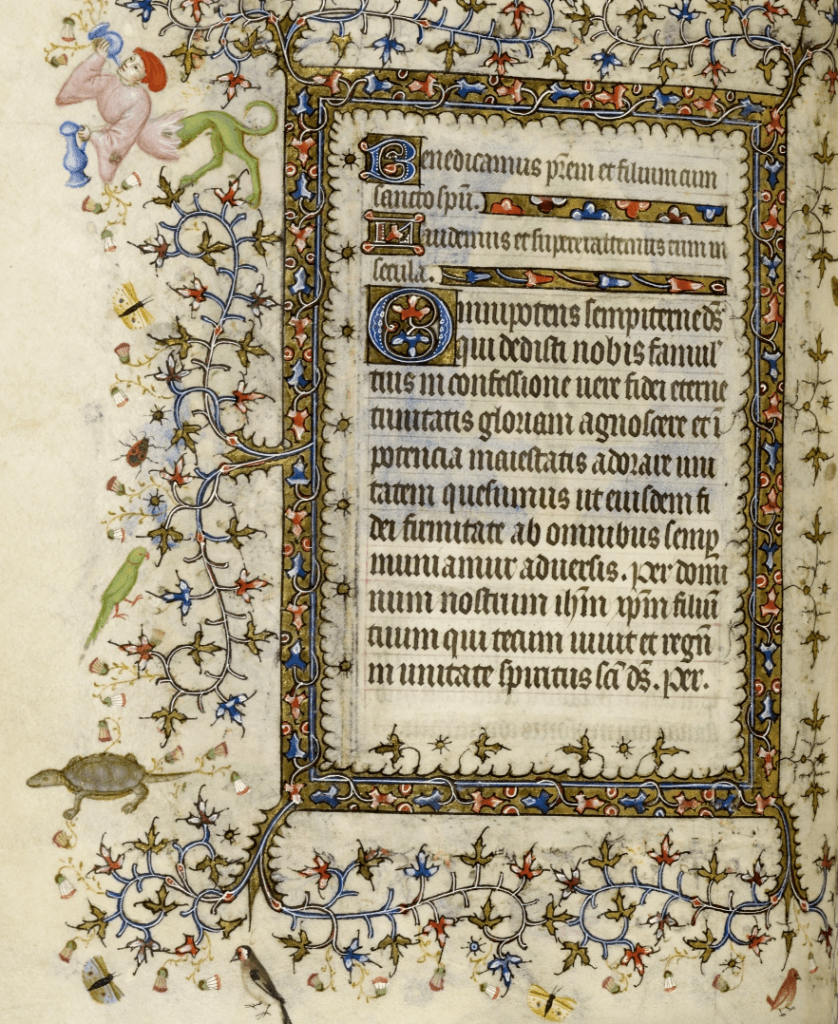 Benedicamus p̄rem et filium cum
sancto spū.
Laudemus et superexaltemus eum in
secula.
Omnipotens sempiterne d̄s
qui dedisti nobis famul'
tuis in confessione vere fidei eterne
trinitatis gloriam agnoscere et ī
potencia maiestatis adorare uni
tatem quesumus ut eiusdem fi
dei firmitate ab omnibus semꝑ
muniamur adversis. Per domi
num nostrum ih̄m xp̄m filiū
tuum qui tecum vivit et regn̄
in unitate spiritus sc̄i d̄s. Per.